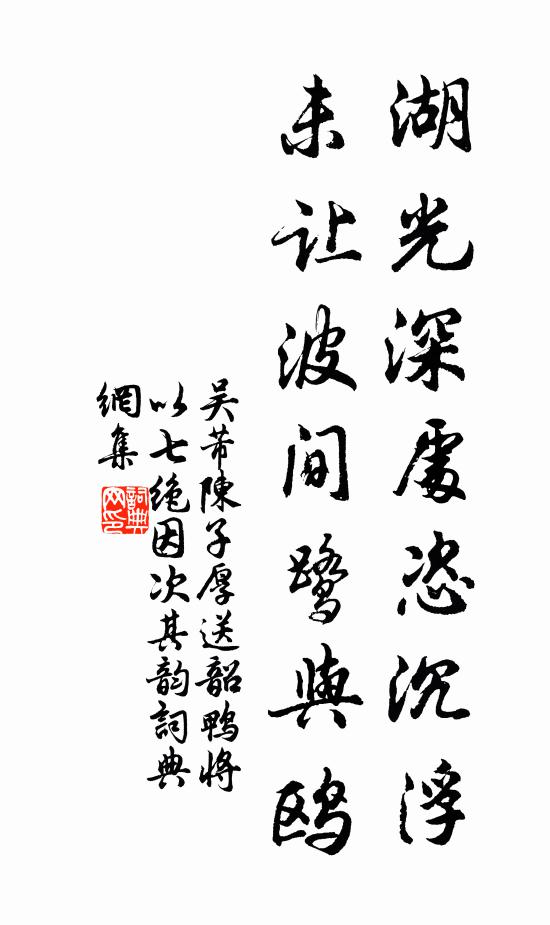 湖光深處恣沉浮
未让波间鹭與鸥
吴芾陳子厚送韶鸭將
以七绝因次其韵詞典
網集
詞典网印